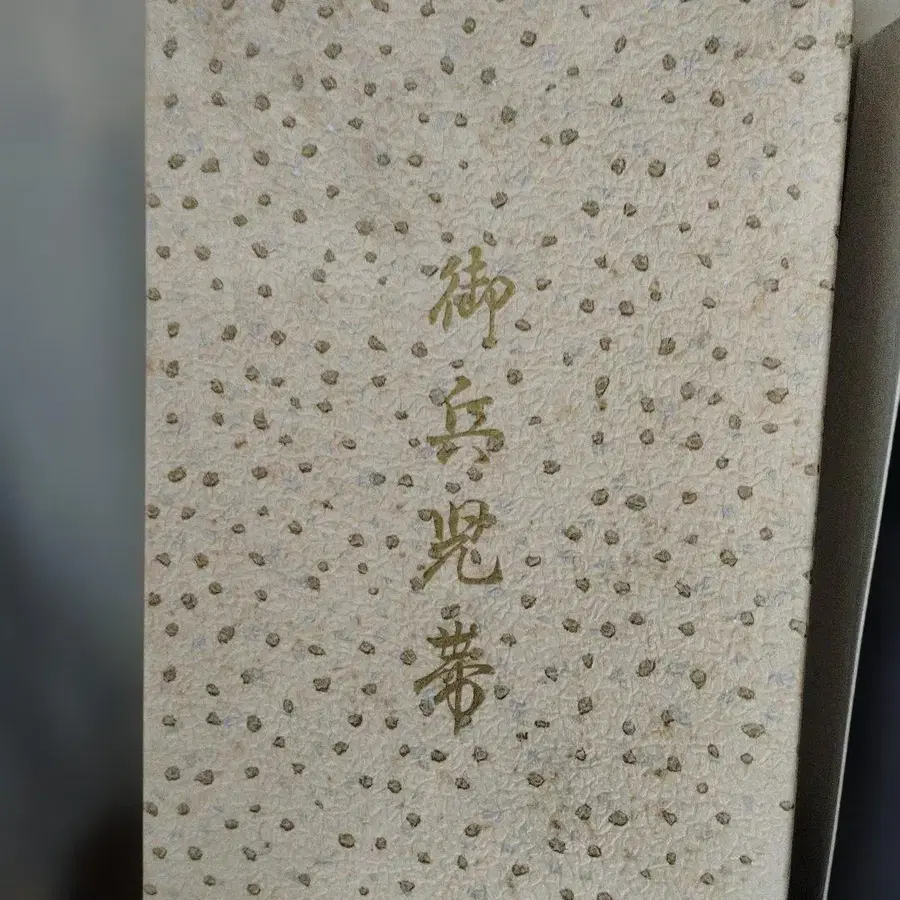 御兵児帯